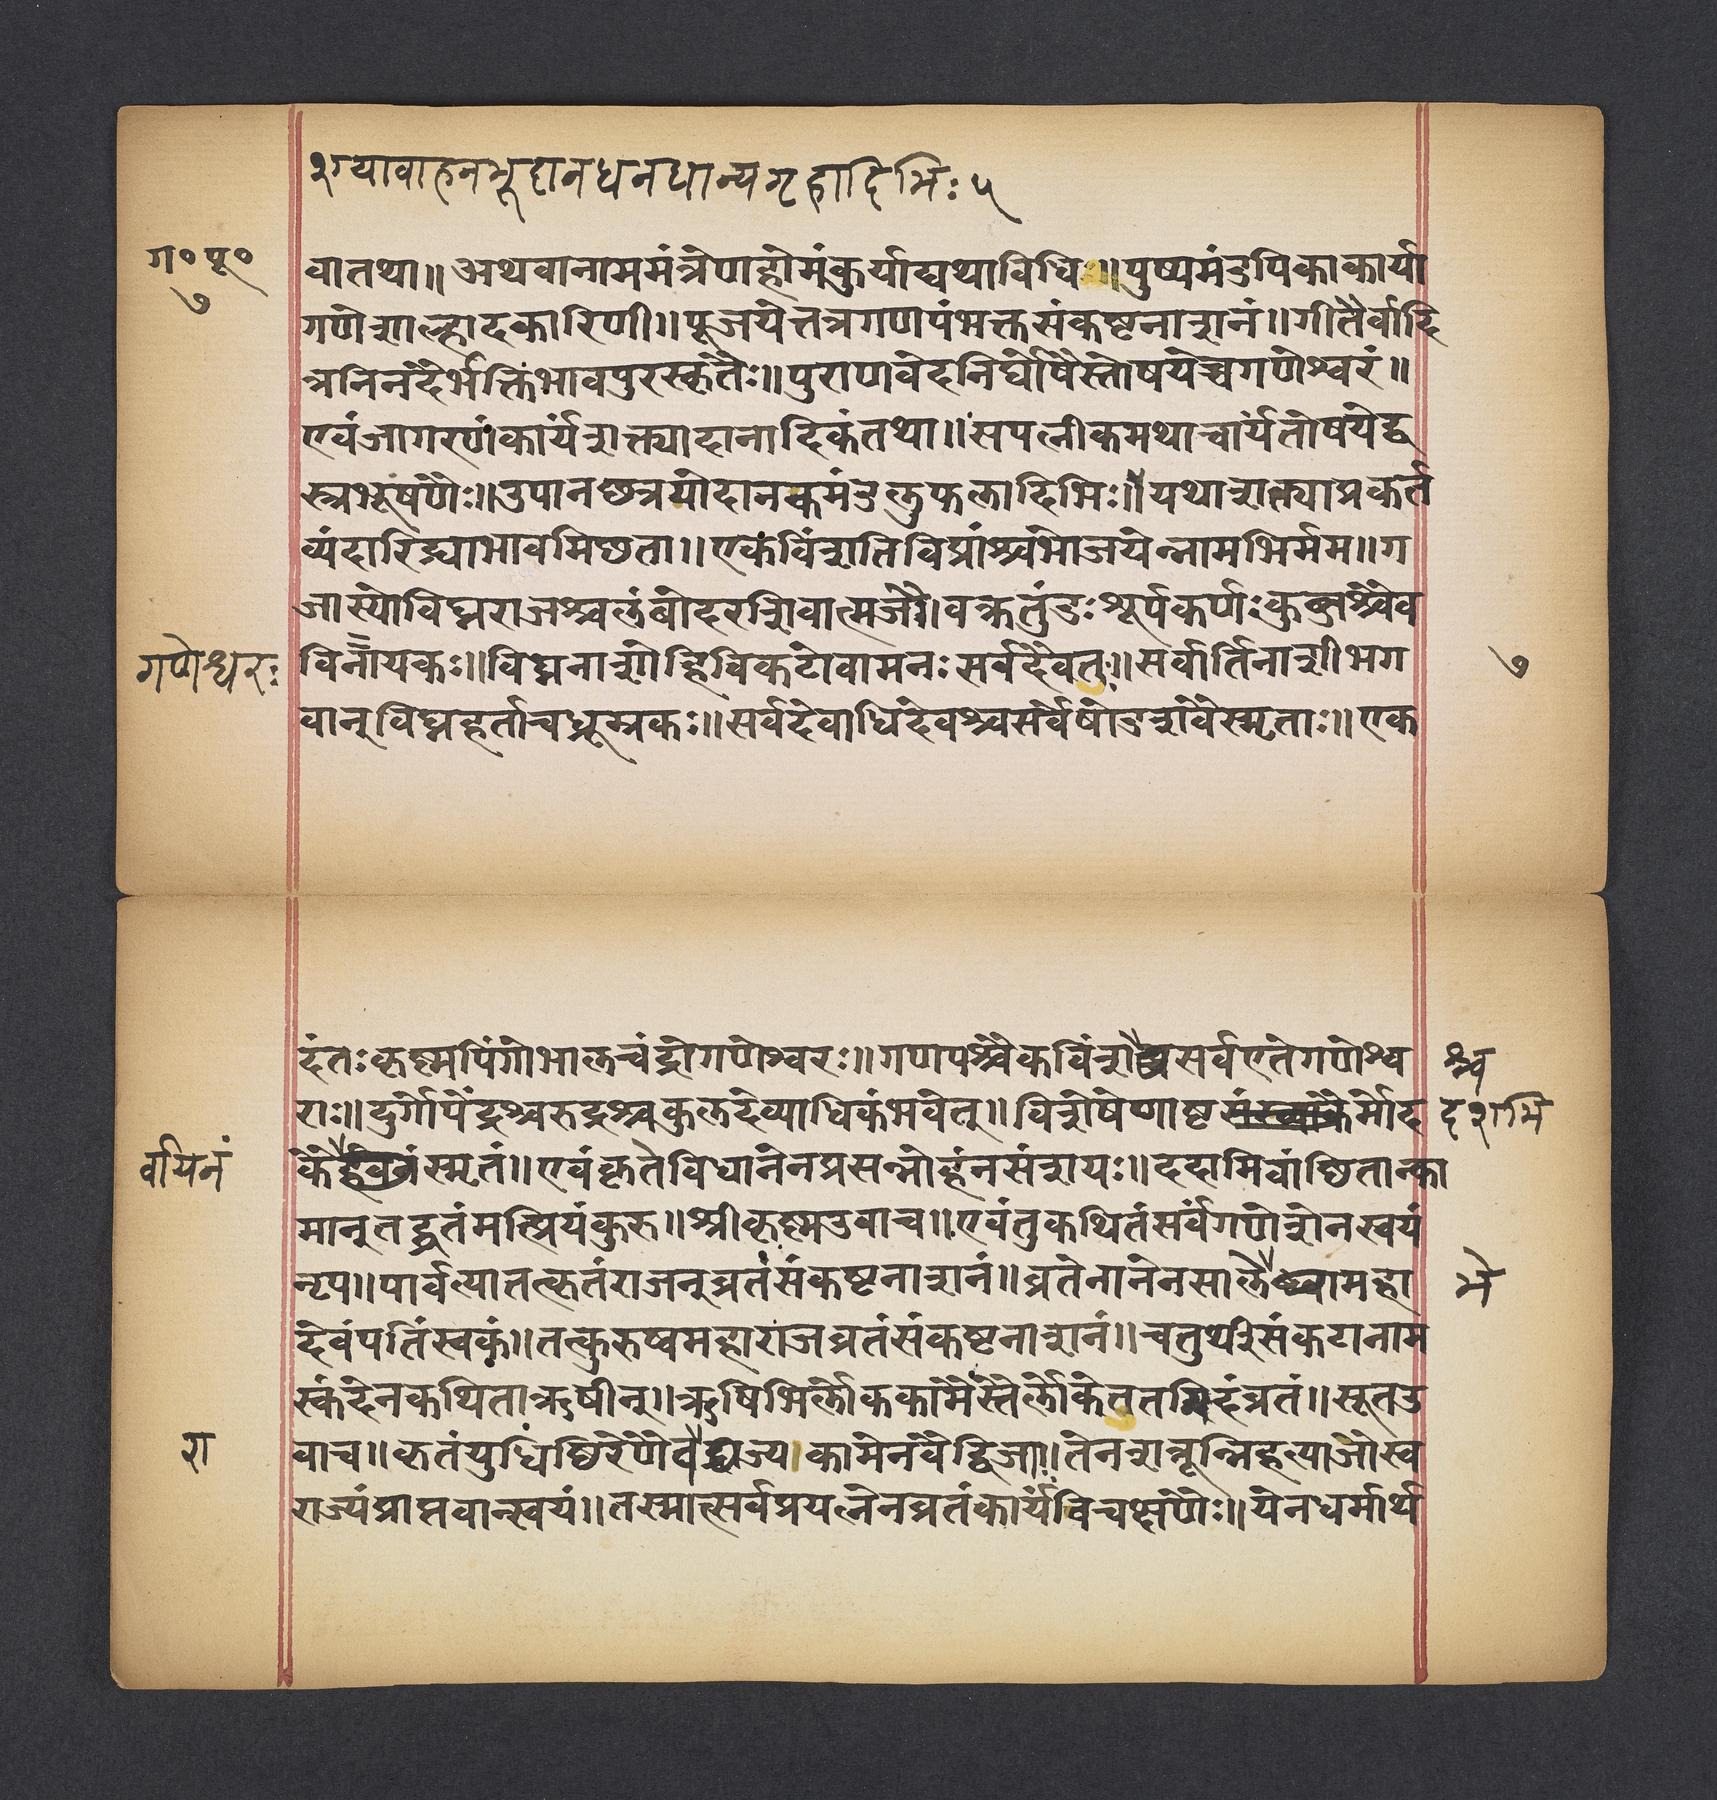 शय्यावाहनभूदानधनधान्यगृहादिभिः ५
ग॰ पू॰
७
वातथा॥ अथवानाममंत्रेणहोमंकुर्याद्यथाविधि॥ पुष्पमंडपिकाकार्या
गणेशाल्हादकारिणी॥ पूजयेत्तत्रगणपंभक्तसंकष्टनाशनं॥ गीतैर्वादि
त्रनिनदैर्भक्तिभावपुरस्कृतैः॥ पुराणवेदनिर्घोषैस्तोषयेच्चगणेश्वरं॥
एवंजागरणंकार्यंशक्त्यादानादिकंतथा॥ सपत्नीकमथाचार्यंतोषयेद्व
स्त्रभूषणैः॥ उपानछत्रगोदानकमंडलुफलादिभिः॥ यथाशक्त्याप्रकर्त
व्यंदारिद्र्याभावमिछता॥ एकविंशतिविप्रांश्चभोजयेन्नामभिर्मम॥ ग
जास्योविघ्नराजश्चलंबोदरशिवात्मजौ। वक्रतुंडःशूर्पकर्णःकुब्जश्चैव
गणेश्वरः
विनायकः॥ विघ्ननाशोह्निविकटोवामनःसर्वदैवतु॥ सर्वार्तिनाशीभग
७
वान्विघ्नहर्ताचधूम्रकः॥ सर्वदेवाधिदेवश्चसर्वेषोडशवैस्मृताः॥ एक
दंतःकृष्णपिंगोभालचंद्रोगणेश्वरः॥ गणपश्चैकविंशसर्वएतेगणेश्व
श्च
राः॥ दुर्गोपेंद्रश्चरुद्रश्चकुलदेव्याधिकंभवेत्॥ विशेषेणाष्टसंख्याकैर्मोद
दशभि
वायनं
कैर्हवनंस्मृतं॥ एवंकृतेविधानेनप्रसन्नोहंनसंशयः॥ ददामिवांछितान्का
मान्तद्व्रतंमत्प्रियंकुरु॥ श्रीकृष्णउवाच॥ एवंतुकथितंसर्वंगणेशेनस्वयं
नृप॥ पार्वत्यातत्कृतंराजन्व्रतंसंकष्टनाशनं॥ व्रतेनानेनसालेमहा
भे
देवंपतिंस्वकं॥ तत्कुरुष्वमहाराजव्रतंसंकष्टनाशनं॥ चतुर्थीसंकटानाम
स्कंदेनकथिताऋषीन्॥ ऋषिभिर्लोककामैस्तैर्लोकेततमिदंव्रतं॥ सूतउ
रा
वाच॥ कृतंयुधिष्ठिरेणैवज्यकामेनवैद्विजाः॥ तेनशत्रून्निहत्याजौस्व
राज्यंप्राप्तवान्स्वयं॥ तस्मात्सर्वप्रयत्नेनव्रतंकार्यंविचक्षणैः॥ येनधर्मार्थ